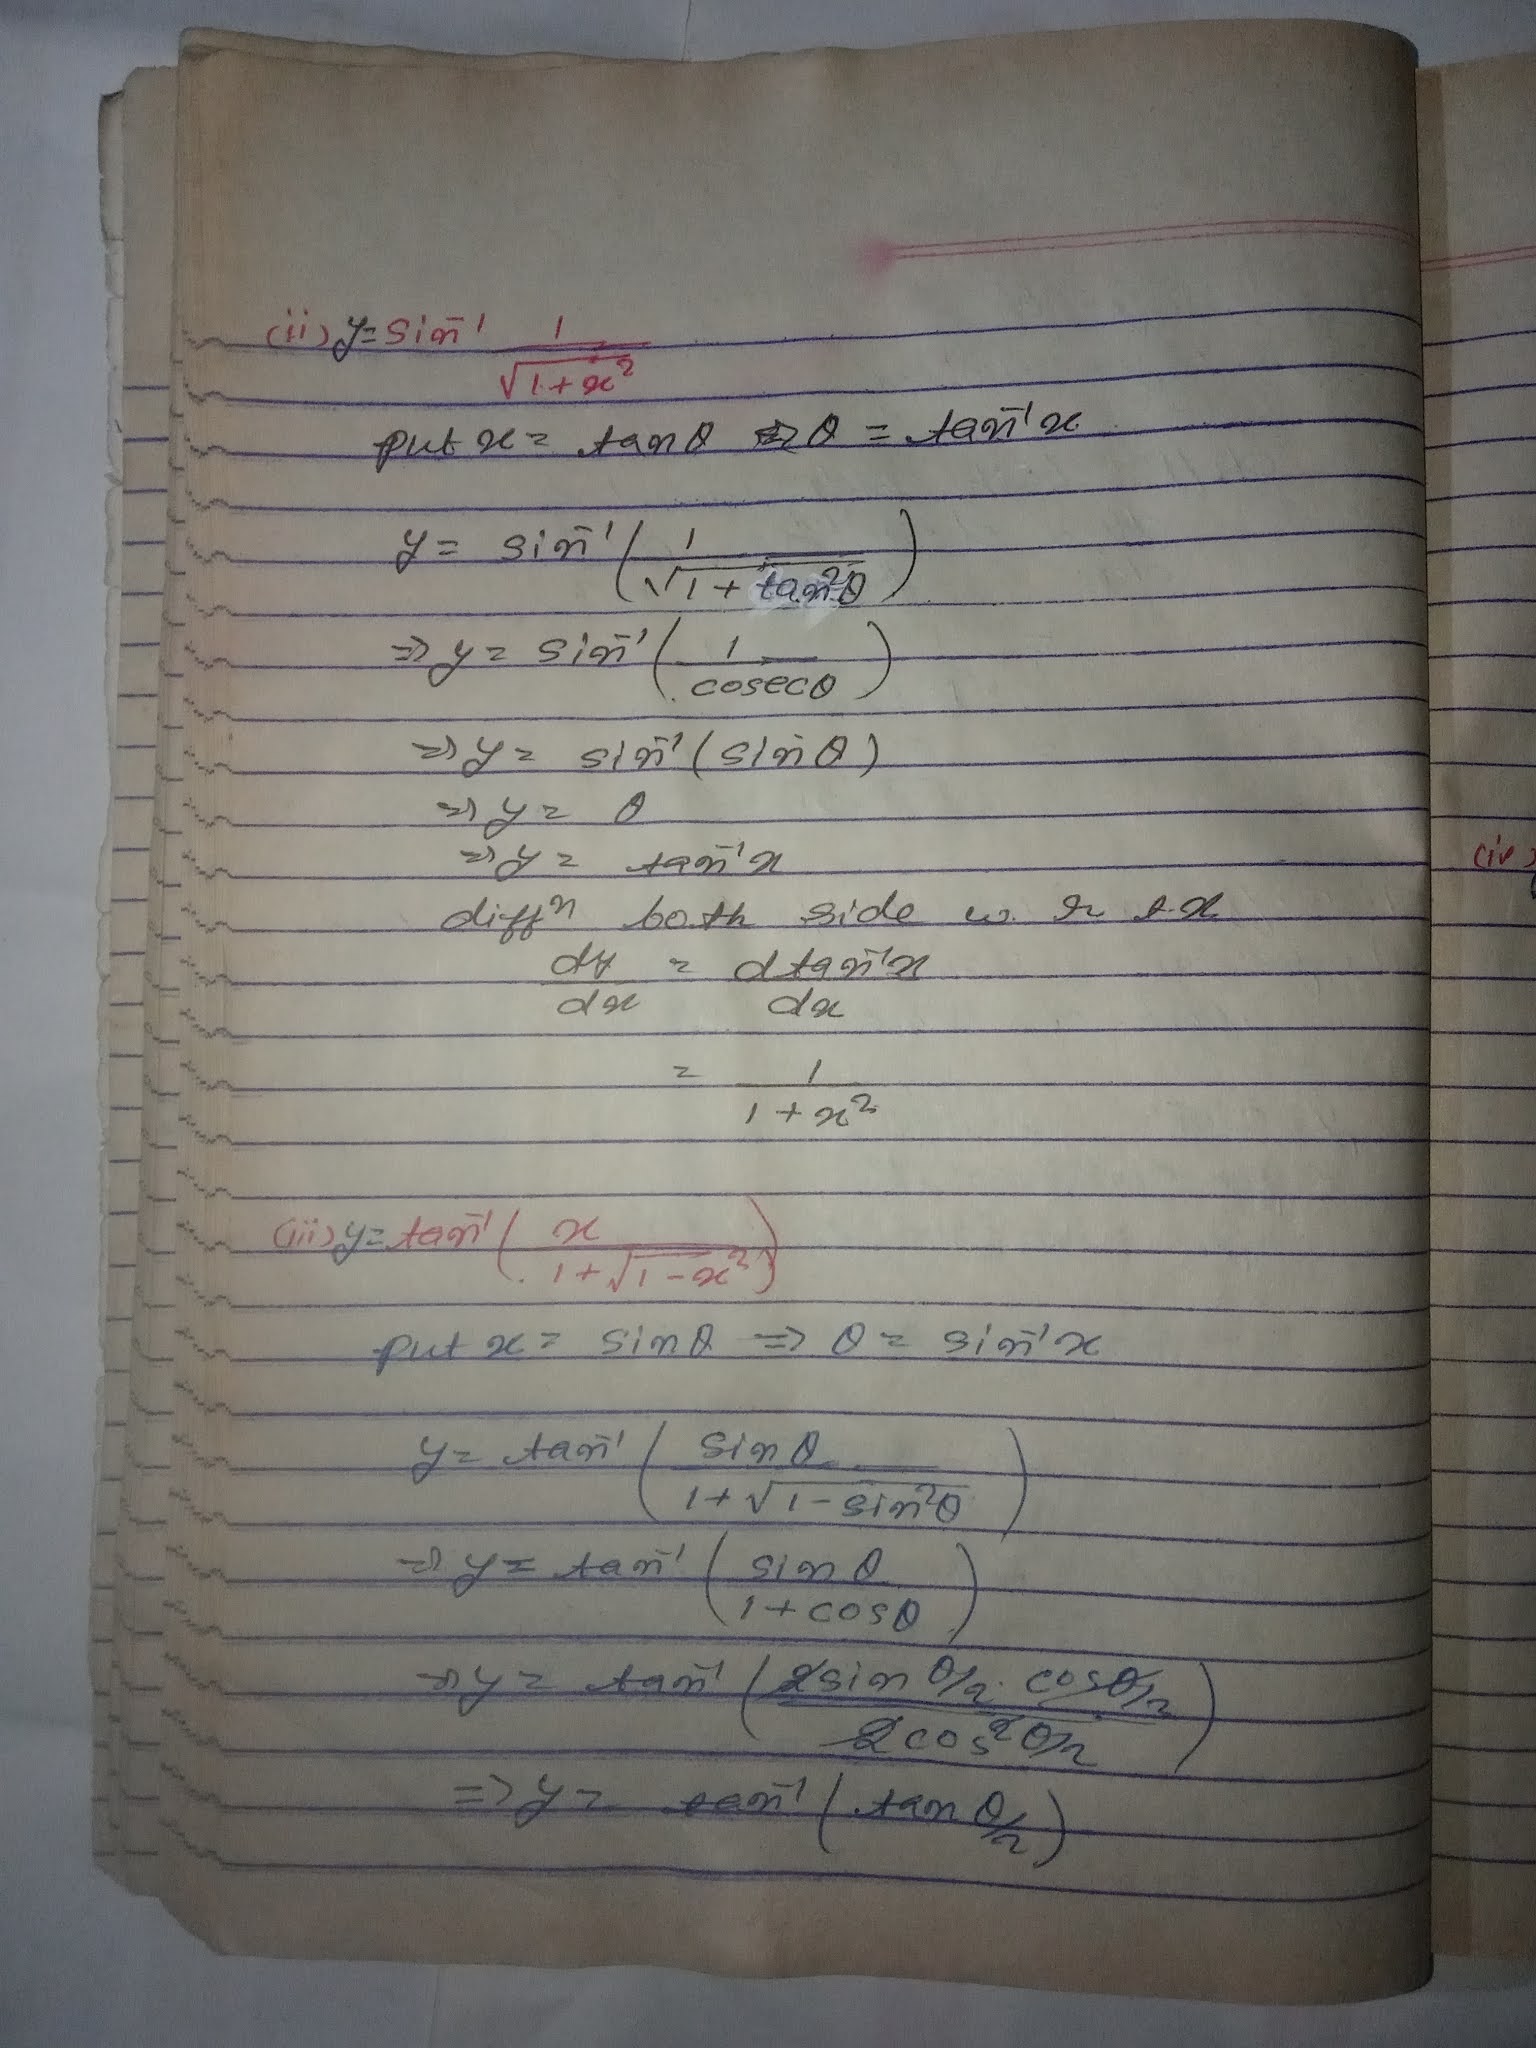 (ii) y = sin⁻¹ 1/√(1+x²)
put x = tanθ ⇒ θ = tan⁻¹x
y = sin⁻¹(1/√(1+tan²θ))
⇒ y = sin⁻¹(1/cosecθ)
⇒ y = sin⁻¹(sinθ)
⇒ y = θ
⇒ y = tan⁻¹x
diffⁿ both side w.r.t.x
dy/dx = d tan⁻¹x/dx
= 1/(1+x²)
(iii) y = tan⁻¹(x/(1+√(1-x²)))
put x = sinθ ⇒ θ = sin⁻¹x
y = tan⁻¹(sinθ/(1+√(1-sin²θ)))
⇒ y = tan⁻¹(sinθ/(1+cosθ))
⇒ y = tan⁻¹(2sinθ/2 · cosθ/2 / 2cos²θ/2)
⇒ y = tan⁻¹(tanθ/2)
(iv)